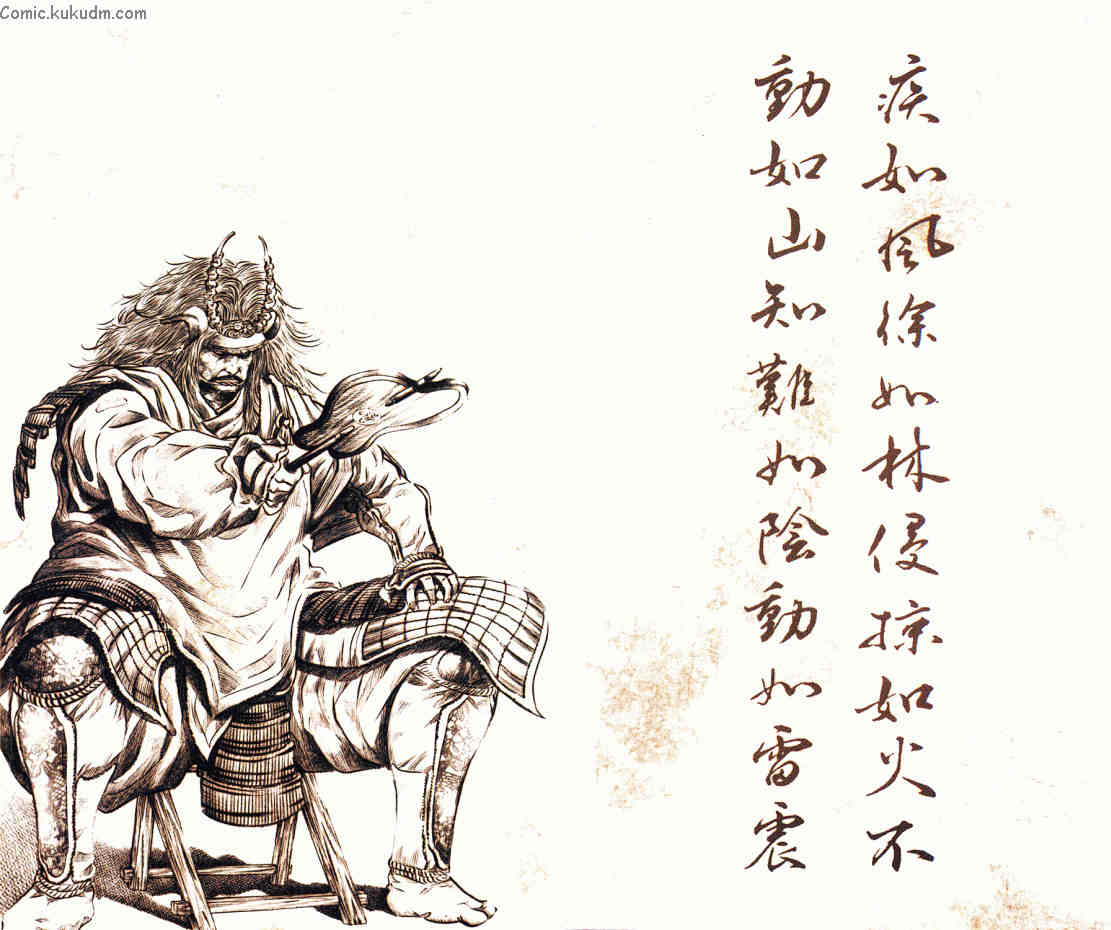 Comic.kukudm.com
疾如風徐如林侵掠如火不
動如山知難如陰動如雷震